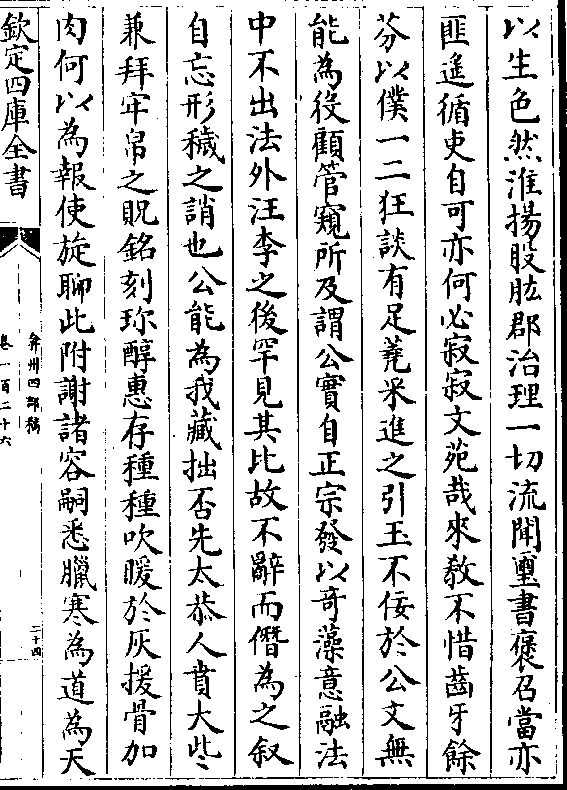 以生色然淮揚股肱郡治理一切流聞璽書褒召當亦
匪遙循吏自可亦何必寂寂文苑哉來教不惜齒牙餘
芬以僕一二狂談有足蕘采進之引玉不佞於公文無
能為役顧管窺所及謂公實自正宗發以竒藻意融法
中不出法外汪李之後罕見其比故不辭而僭為之叙
自忘形穢之誚也公能為我藏拙否先太恭人賁大㱔
兼拜牢帛之貺銘刻珎醇惠存種種吹暖於灰援骨加
肉何以為報使旋聊此附謝諸容嗣悉臘寒為道為天
欽定四庫全書
弇州四部稿
卷一百二十六
二十四